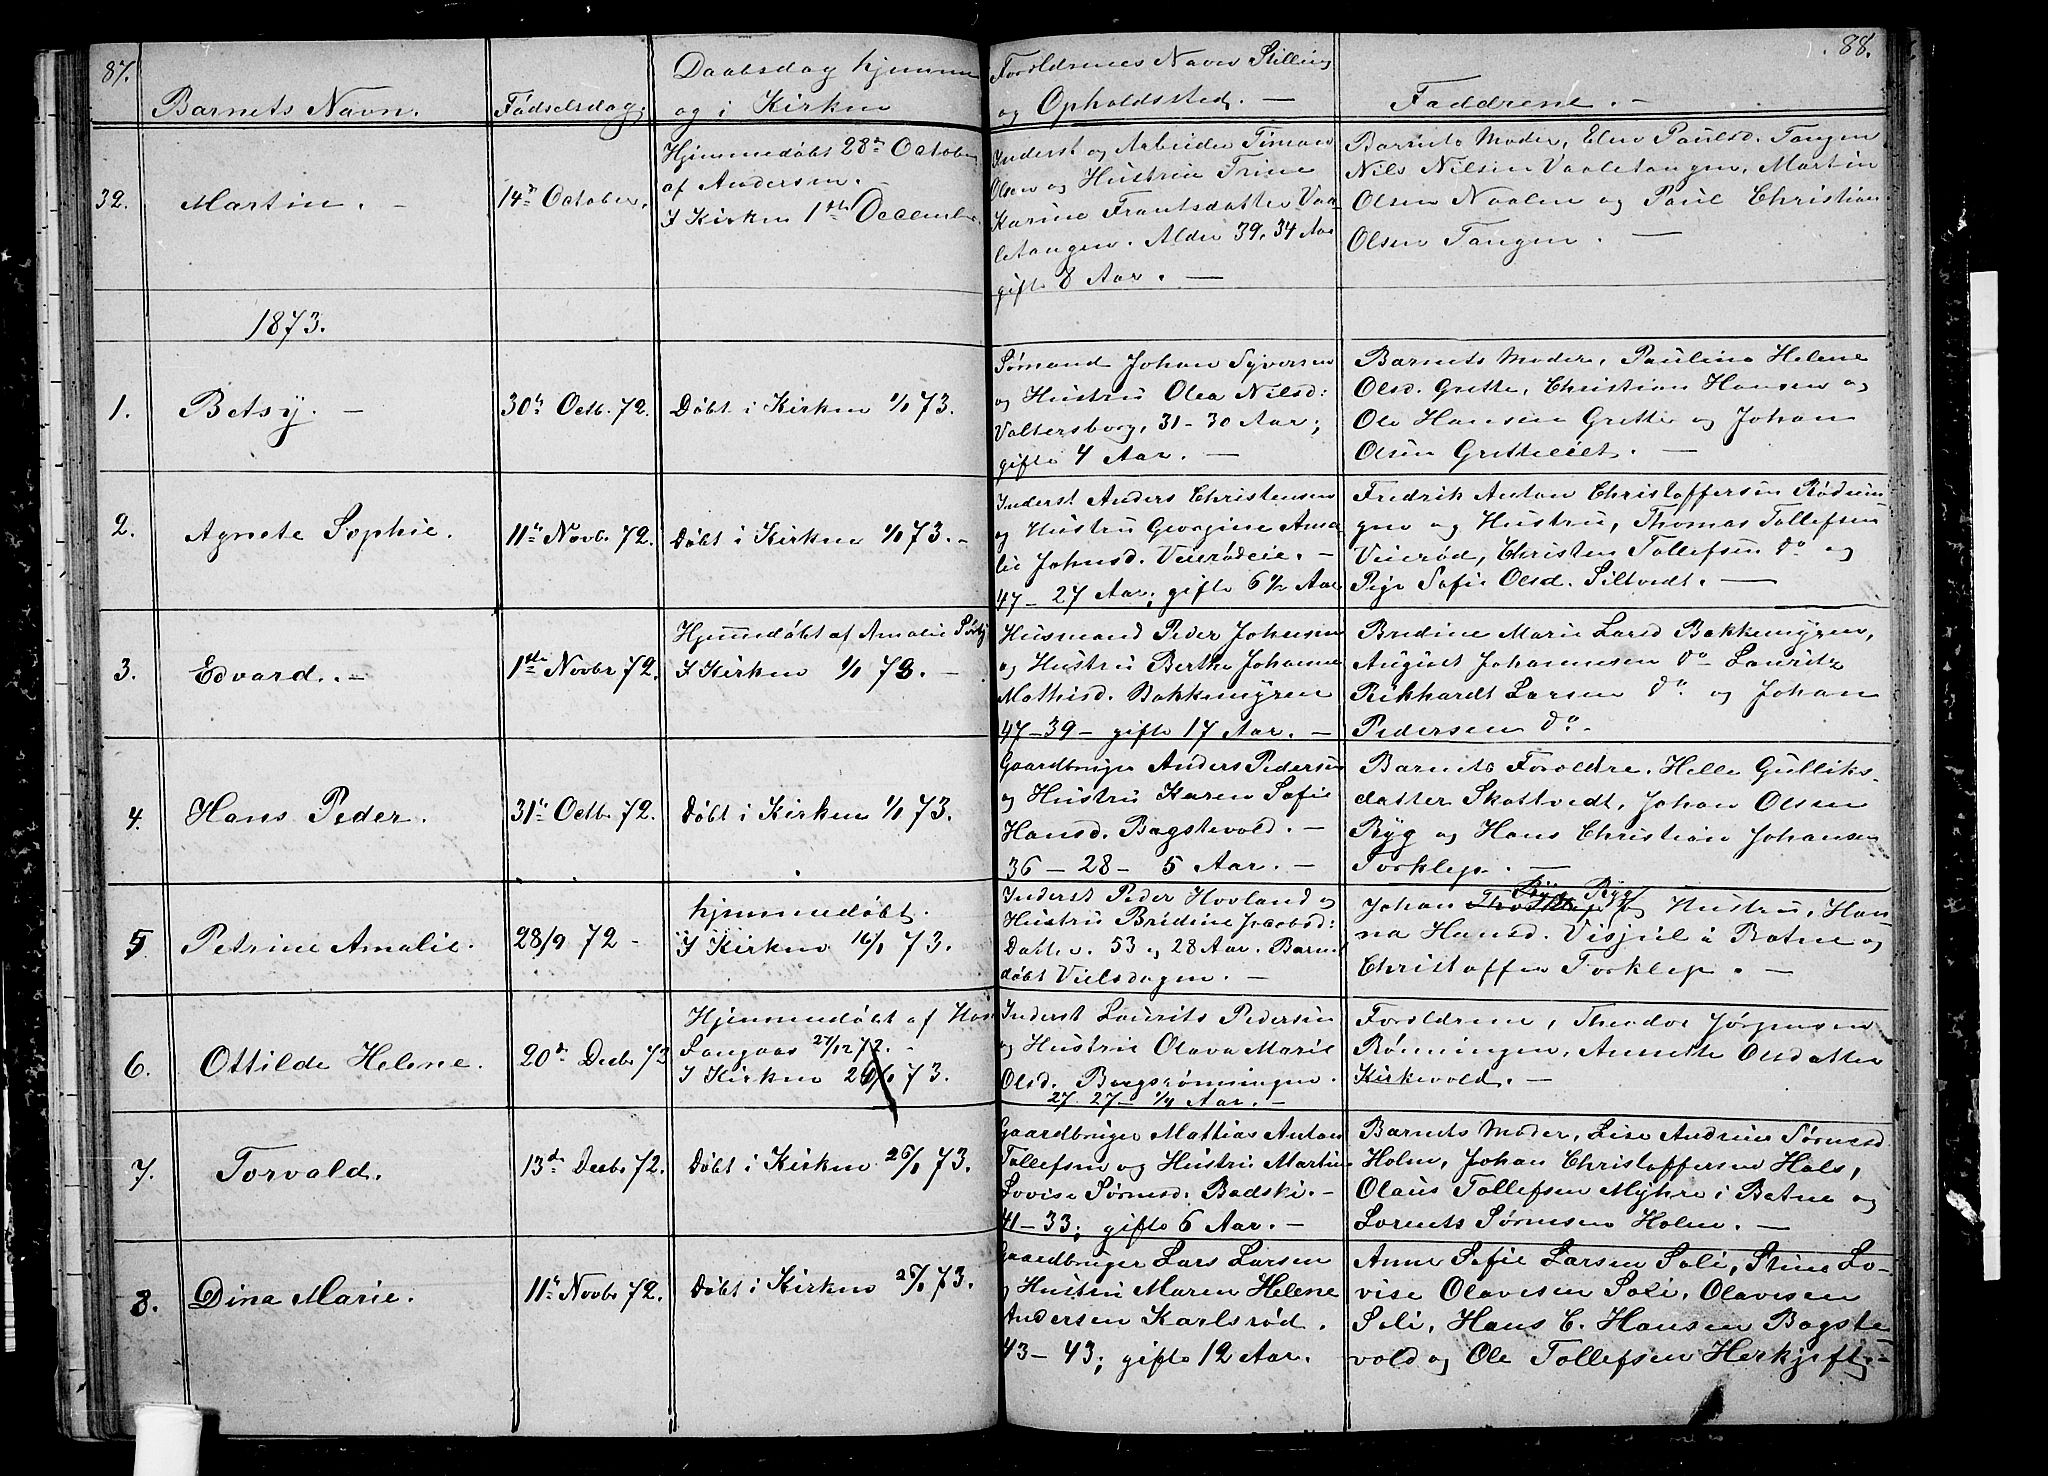 87.
Barnets Navn.
Fødselsdag.
Daabsdag hjemme
og i Kirken
Forældrenes Navn Stilling
og Opholdssted. —
Faddrene. —
88.
32.
Martin. —
14de October.
Hjemmedøbt 28de October
af Andersen.
I Kirken 1ste December.
Inderst og Arbeider Timan
Olsen og Hustru Trine
Karine Frantsdatter Vaa-
letangen. Alder 39, 34 Aar
gifte 8 Aar. —
Barnets Moder, Elen Paulsd. Tangen
Nils Nilsen Vaaletangen, Martin
Olsen Naalen og Paul Christian
Olsen Tangen. —
1873.
1.
Betsy. —
30te Octb. 72.
Døbt i Kirken 1/1 73.
Sømand Johan Syversen
og Hustru Olea Nilsd:
Valtersborg, 31 - 30 Aar;
gifte 4 Aar. —
Barnets Moder, Pauline Helene
Olsd. Grette, Christian Hansen og
Ole Hansen Grette og Johan
Olsen Gretteeiet. —
2.
Agnete Sophie.
11te Novbr 72.
Døbt i Kirken 1/1 73. -
Inderst Anders Christensen
og Hustru Georgine Ama
lie Johnsd. Veierødeie. -
47 - 27 Aar; gifte 6 1/2 Aar
Fredrik Anton Christoffersen Rødsen-
gen og Hustru, Thomas Tollefsen
Veierød, Christen Tollefsen do og
Pige Sofie Olsd. Siltvedt. —
3.
Edvard. -
1ste Novbr 72.
Hjemmedøbt af Amalie Sørby
I Kirken 1/1 73. -
Husmand Peder Johnsen
og Hustru Berthe Johanne
Mathisd. Bakkemyren
47 - 39 - gifte 17 Aar. -
Bredine Marie Larsd Bakkemyren,
August Johannesen do Lauritz
Rikhardt Larsen do. og Johan
Pedersen do.
4.
Hans Peder.
31te Octbr. 72.
Døbt i Kirken 1/1 73.
Gaardbruger Anders Pedersen
og Hustru Karen Sofie
Hansd. Bagstevold. -
36 - 28 - 5 Aar. -
Barnets Forældre. Helle Gulliks-
datter Skottvedt, Johan Olsen
Ryg og Hans Christian Johansen
Torklep. —
5.
Petrine Amalie.
28/9 72 -
hjemmedøbt.
I Kirken 16/1 73.
Inderst Peder Hovland og
Hustru Bredine Jacobsd:
Datter. 53 og 28 Aar. Barnet
døbt Veilsdagen. —
Ryg Ryg
Johan og Hustru, Han-
na Hansd. Visjul i Botne og
Christoffer Torklep. —
6.
Ottilde Helene.
20de Decbr 73
Hjemmedøbt af Hos
Langaas 27/12 72. -
I Kirken 26/1 73.
Inderst Laurits Pedersen
og Hustru Olava Marie
Olsd. Bergsrønningen.
27. 27 - 1/4 Aar. -
Forældrene, Theodor Jørgensen
Rønningen, Annette Olsdatter
Kirkevold. —
7.
Torvald.
13de Decbr 72.
Døbt i Kirken 26/1 73.
Gaardbruger Mathias Anton
Tollefsen og Hustru Martine
Lovise Sørensd. Badski. -
41 - 33; gifte 6 Aar. -
Barnets Moder, Lise Andrine Sørensd
Holm, Johan Christoffersen Hals,
Olaus Tollefsen Myhre i Botne og
Lorents Sørensen Holm. —
8.
Dina Marie.
11te Novbr 72.
Døbt i Kirken 26/1 73.
Gaardbruger Lars Larsen
og Hustru Maren Helene
Andersen Karlsrød.
43 - 43; gifte 12 Aar.
Anne Sofie Larsen Soli, Stine Lo-
vise Olavesen Soli, Olavesen
Soli, Hans C. Hansen Bagste
vold og Ole Tollefsen Herkjeft. -